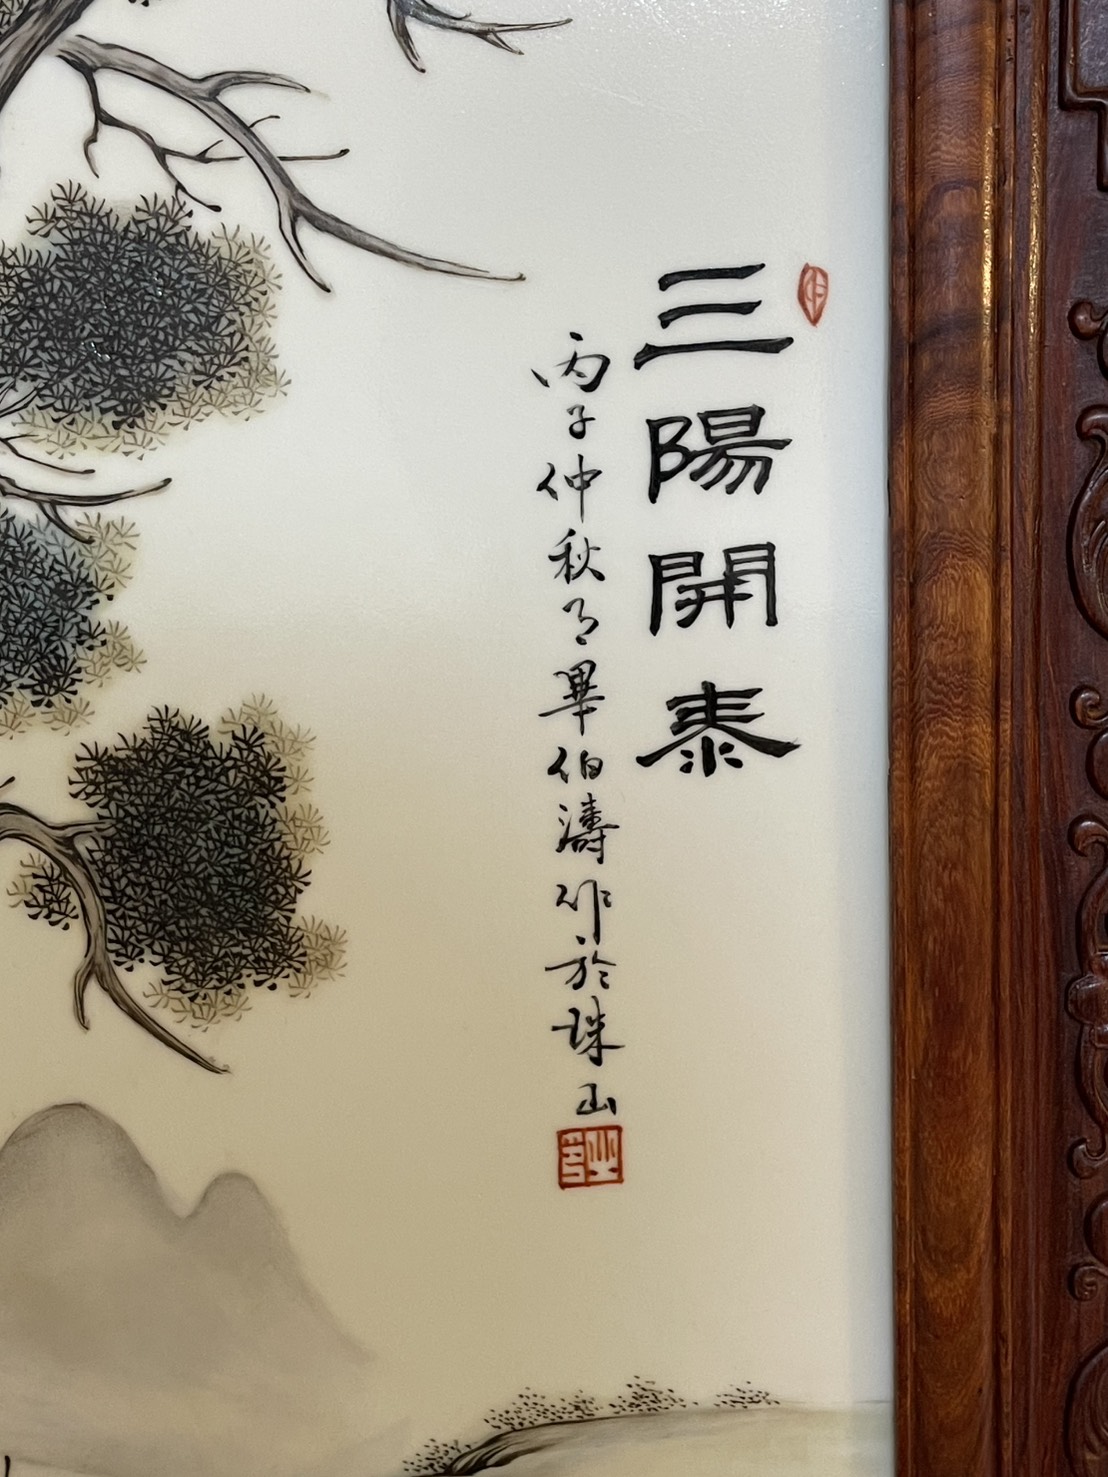 三陽開泰
丙子仲秋月畢伯濤作於珠山